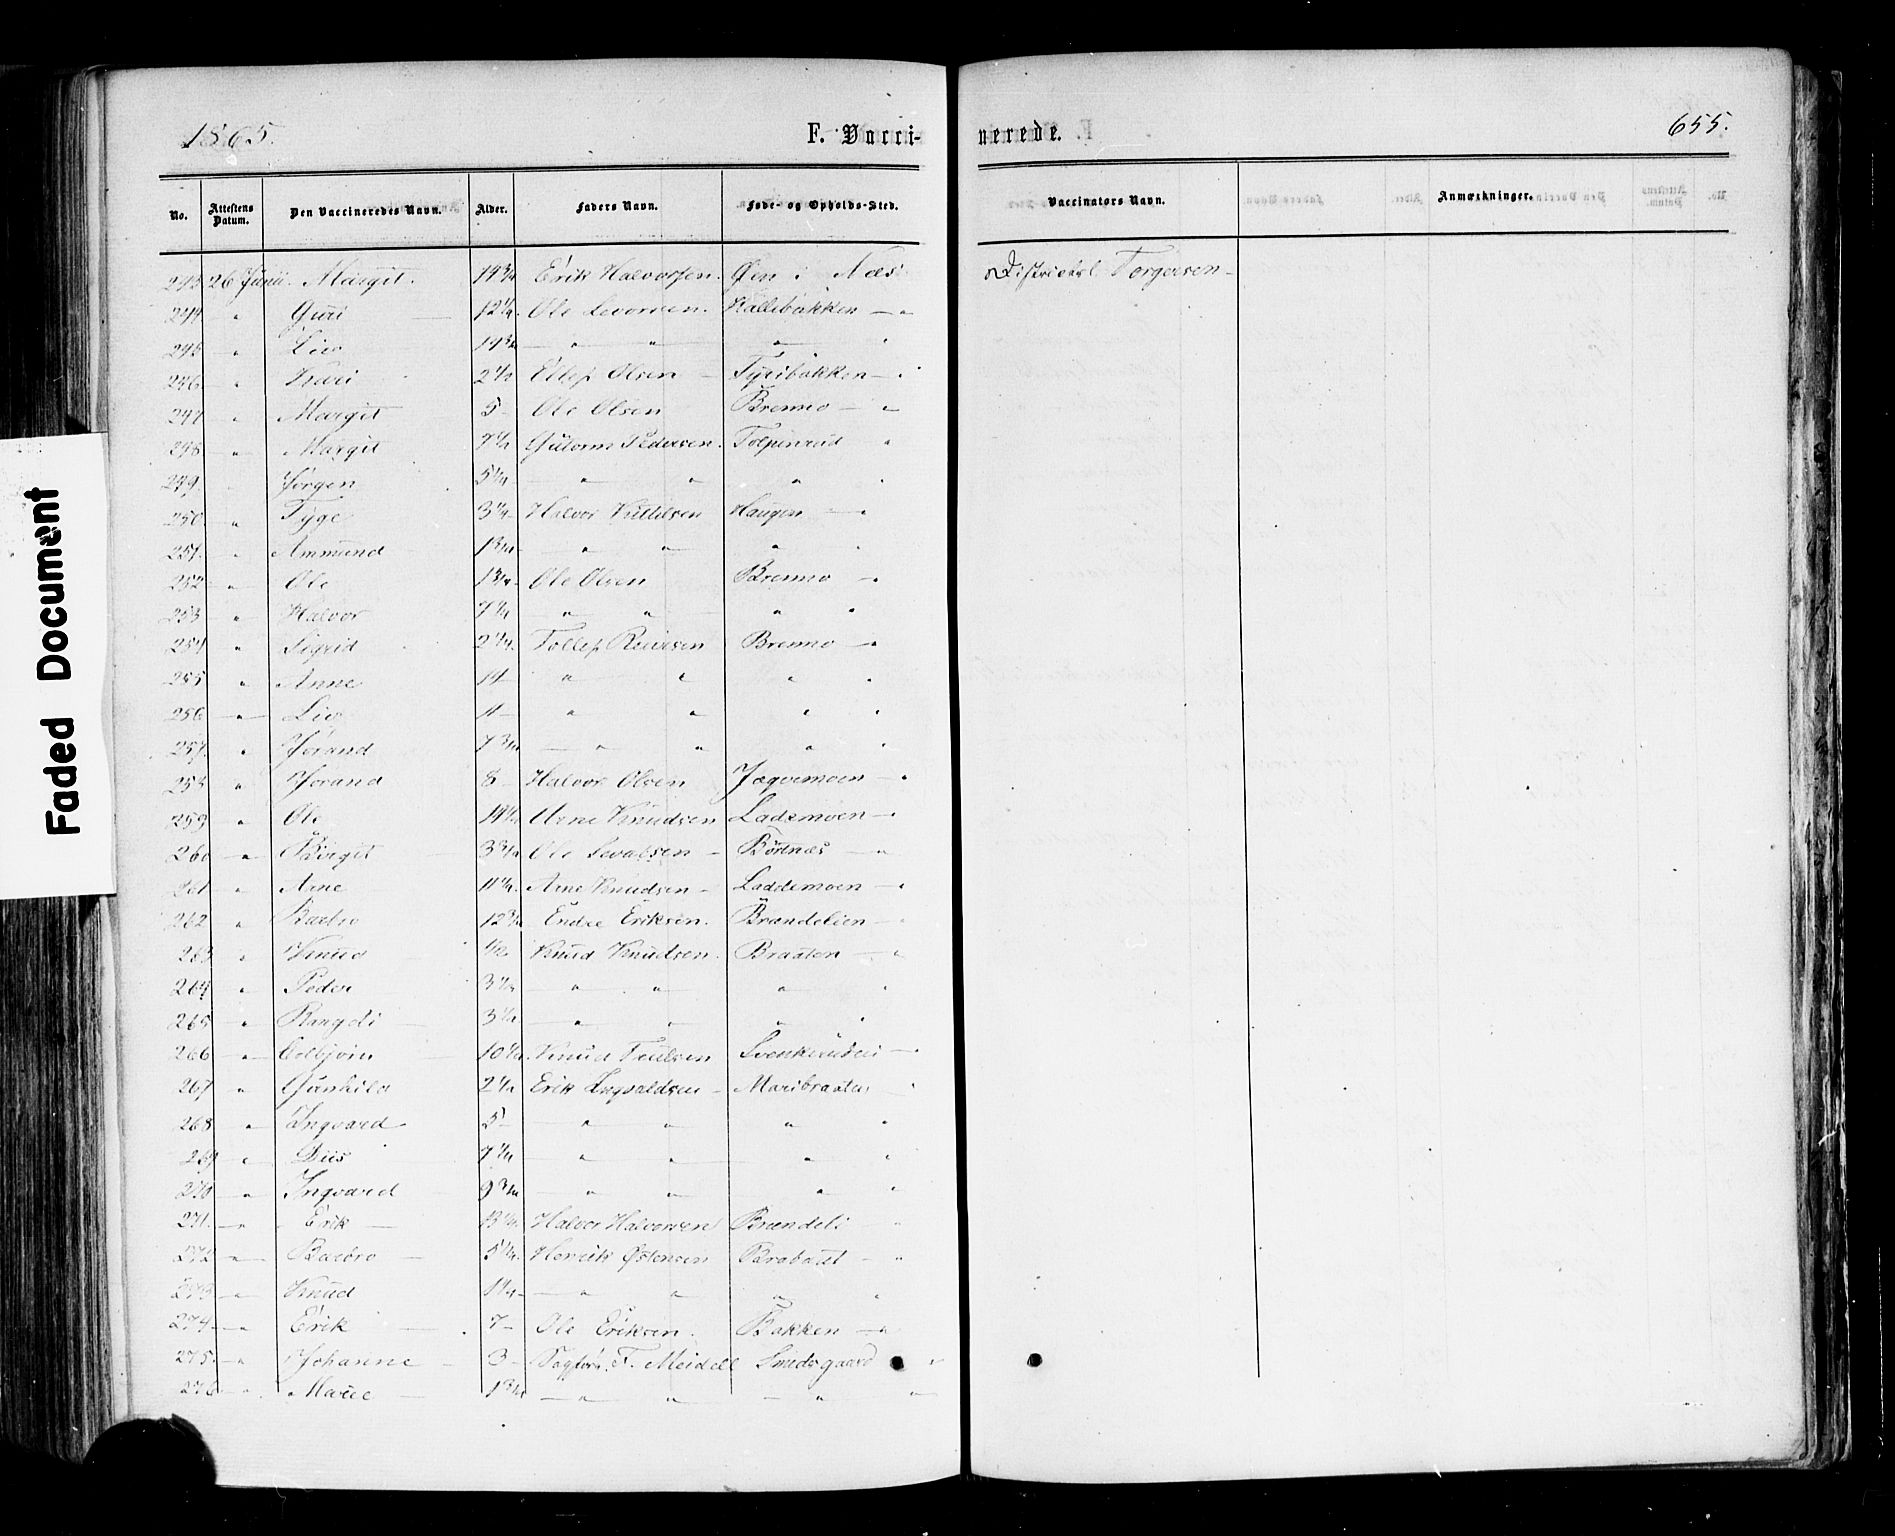 1865.
F. Vacci-
nerede.
655.
No. Attestens Datum. Den Vaccineredes Navn. Alder. Faders Navn. Føde- og Opholds-Sted. Vaccinators Navn. Anmærkninger.
243 26 Junii. Margit. 14 3/4 Erik Halvorsen. Øen i Næs Districtsl. Torgersen
244 " Guri 12 1/4 Ole Levorsen. Kallebakken — "
245 " Liv " " " "
246 " Kari 2 1/2 Ellef Olsen Tyribakken — "
247 " Margit 5 — Ole Olsen Bremmo — "
248 " Margit 7 1/2 Guttorm Pedersen. Tolpinrud "
249. Jørgen 5 1/4 — " " " "
250 " Tyge 3 1/4 — Halvor Knudsen Haugen — "
251. " Ammund 1 3/4 — " " " "
252 " Ole 1 3/4 — Ole Olsen Bremmo — "
253 " Halvor 7 1/4 " " " "
254 " Sigrid 2 1/4 Tollef Bremmo — "
255 " Anne 14 " " " "
256 " Liv — " " " "
257. " Jørand 7 3/4 — " " " "
258 " Jorand 8 — Halvor Olsen Jægermoen — "
259 " Ole Arne Knudsen Lademoen — "
260 " Birgit 3 3/4 Ole Børtnæs — "
261 " Arne 11 1/4. Arne Knudsen — Laddemoen — "
262 " Barbro 12 3/4 Endre Eriksen. Brændelien — "
263 " Knud 1/2 Knud Knudsen. Braaten — "
264 " Peder 3 1/2 " " " "
265 " Rangdi 3 1/2 — " " " "
266 " Colbjørn 10 1/2 Knud —
267 " Gunhild 2 1/2 Erik Ingvaldsen — Maribraaten "
268 " Ingvard 5 — " " " "
269 " Siis 7 1/4 — " " " "
270 " Ingvard 9 3/4 — " " " "
271. " Erik — 13 1/4. Halvor Halvorsen Brændeli "
272 " Barbro — 5 1/4. Henrik Østensen "
273 " Knud — " " " "
274 " Erik — 7 — Ole Eriksen. Bakken — "
275. " Johanne — 3 — Sagfører F. Meidell Smedsgaard "
276 " Marie — 1 3/4 — " " — " "
Faded Document